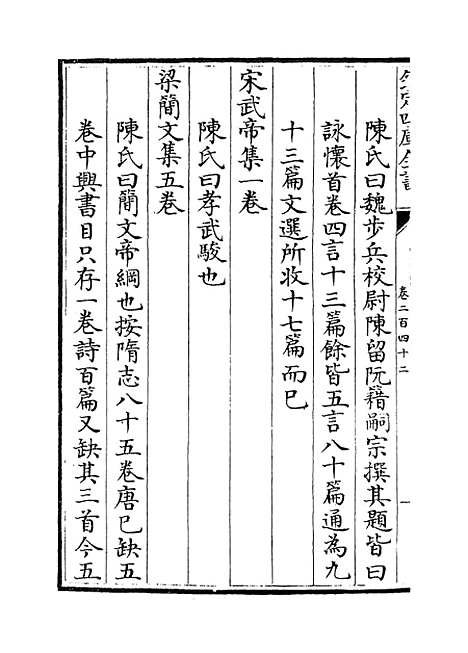 欽定四庫全書
卷二百四十二
陳氏曰魏步兵校尉陳留阮籍嗣宗撰其題皆曰
詠懷首卷四言十三篇餘皆五言八十篇通為九
十三篇文選所收十七篇而已
宋武帝集一卷
陳氏曰孝武駿也
梁簡文集五卷
陳氏曰簡文帝綱也按隋志八十五卷唐已缺五
卷中興書目只存一卷詩百篇又缺其三首今五